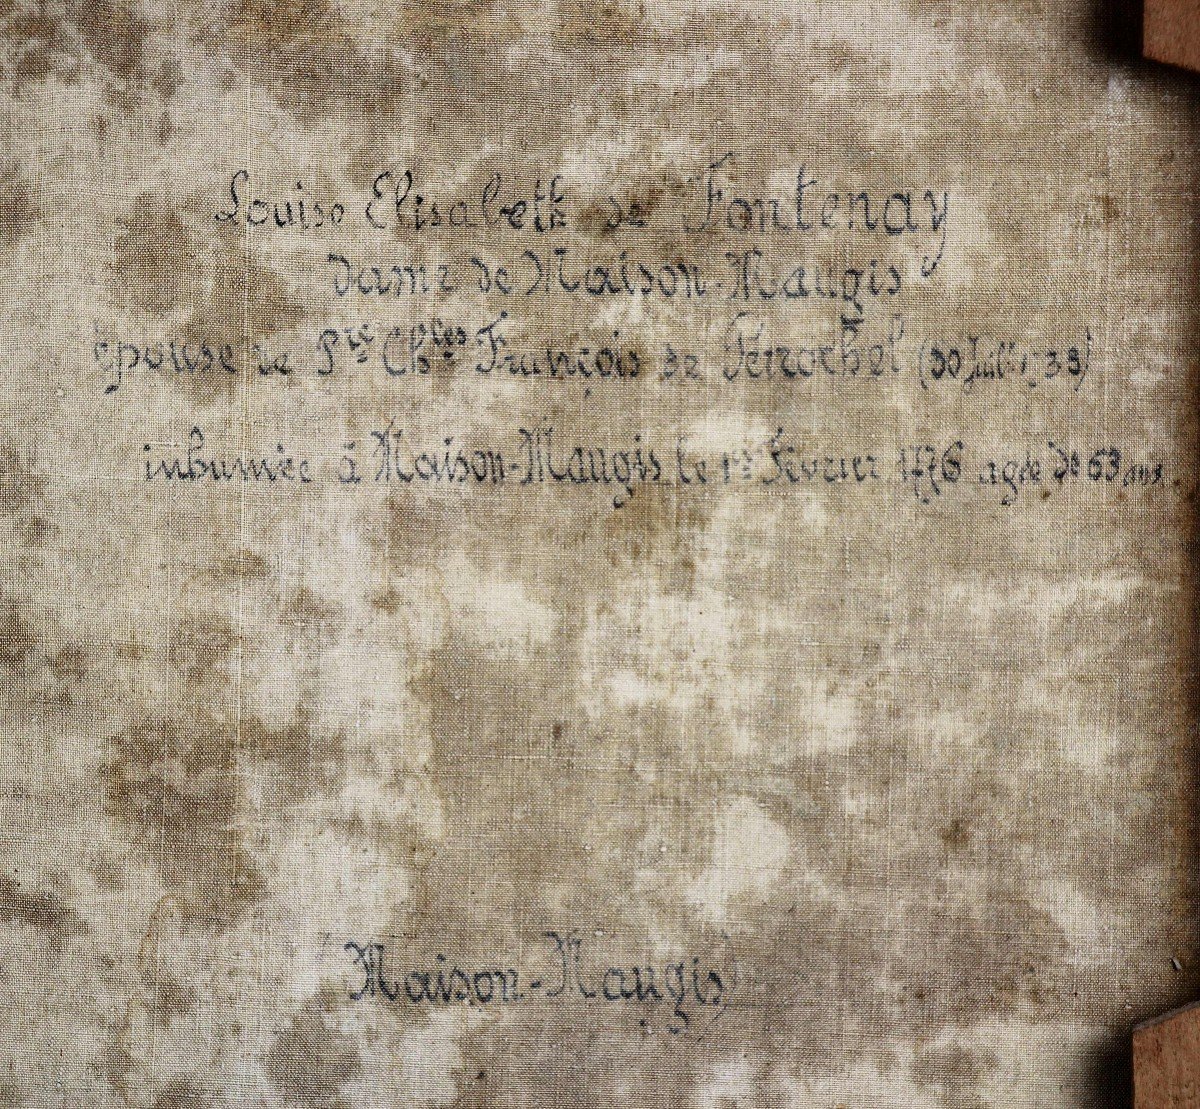 Louise Elisabeth de Fontenay
dame de Maison-Maugis
épouse de Pre Chles François de Perrochel (30 Juillet 39)
inhumée à Maison-Maugis le 1er Février 1776 agée de 63 ans
(Maison-Maugis)